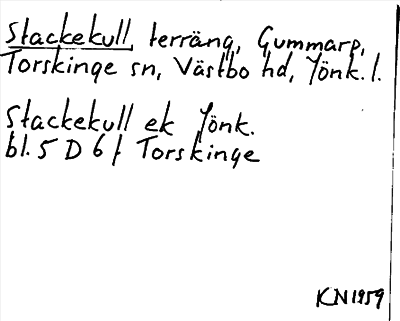 Stackekull, terräng, Gummarp,
Torskinge sn, Västbo hd, Jönk. l.
Stackekull ek Jönk.
bl. 5 D 6 f Torskinge
KN 1959